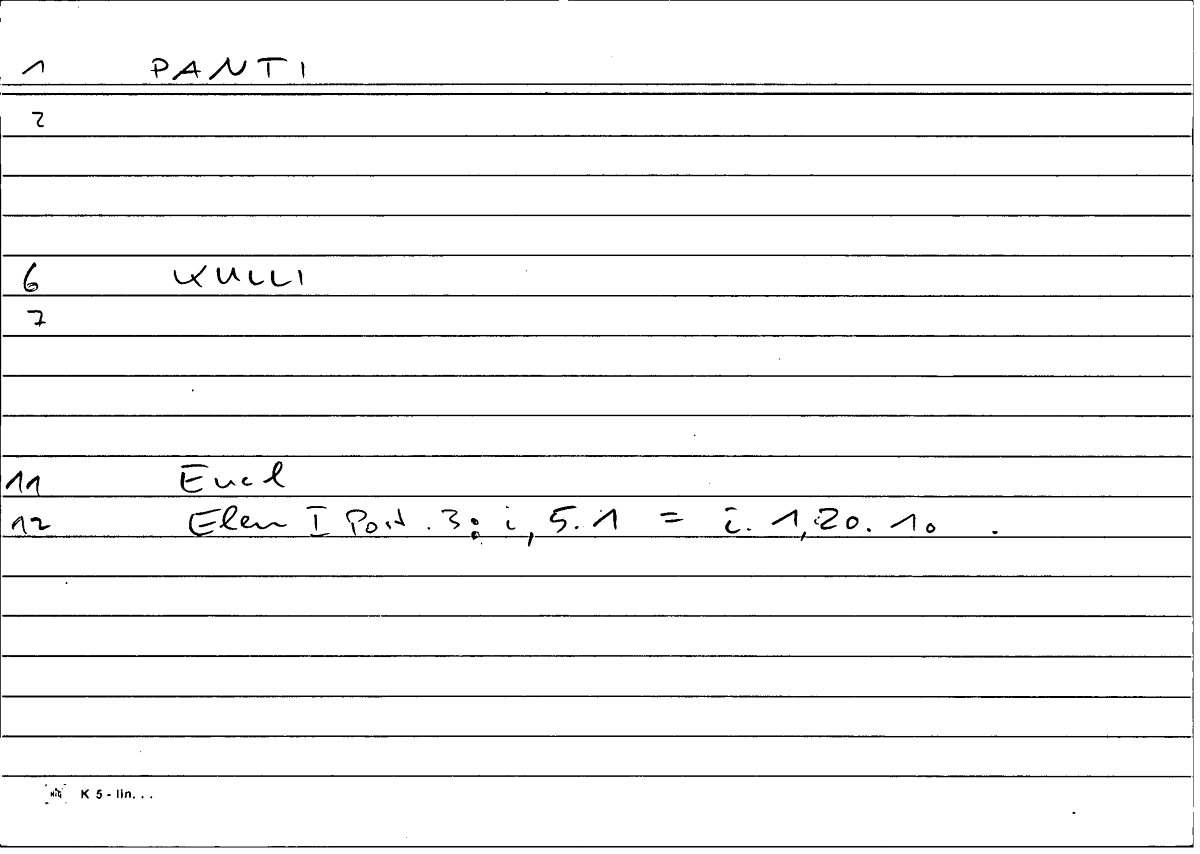 1 PANTI
2
6 KULLI
7
11 Eucl
12 Elem I Post. 3: i, 5.1 = i. 1,20.10 .
K 5 - lin. . .